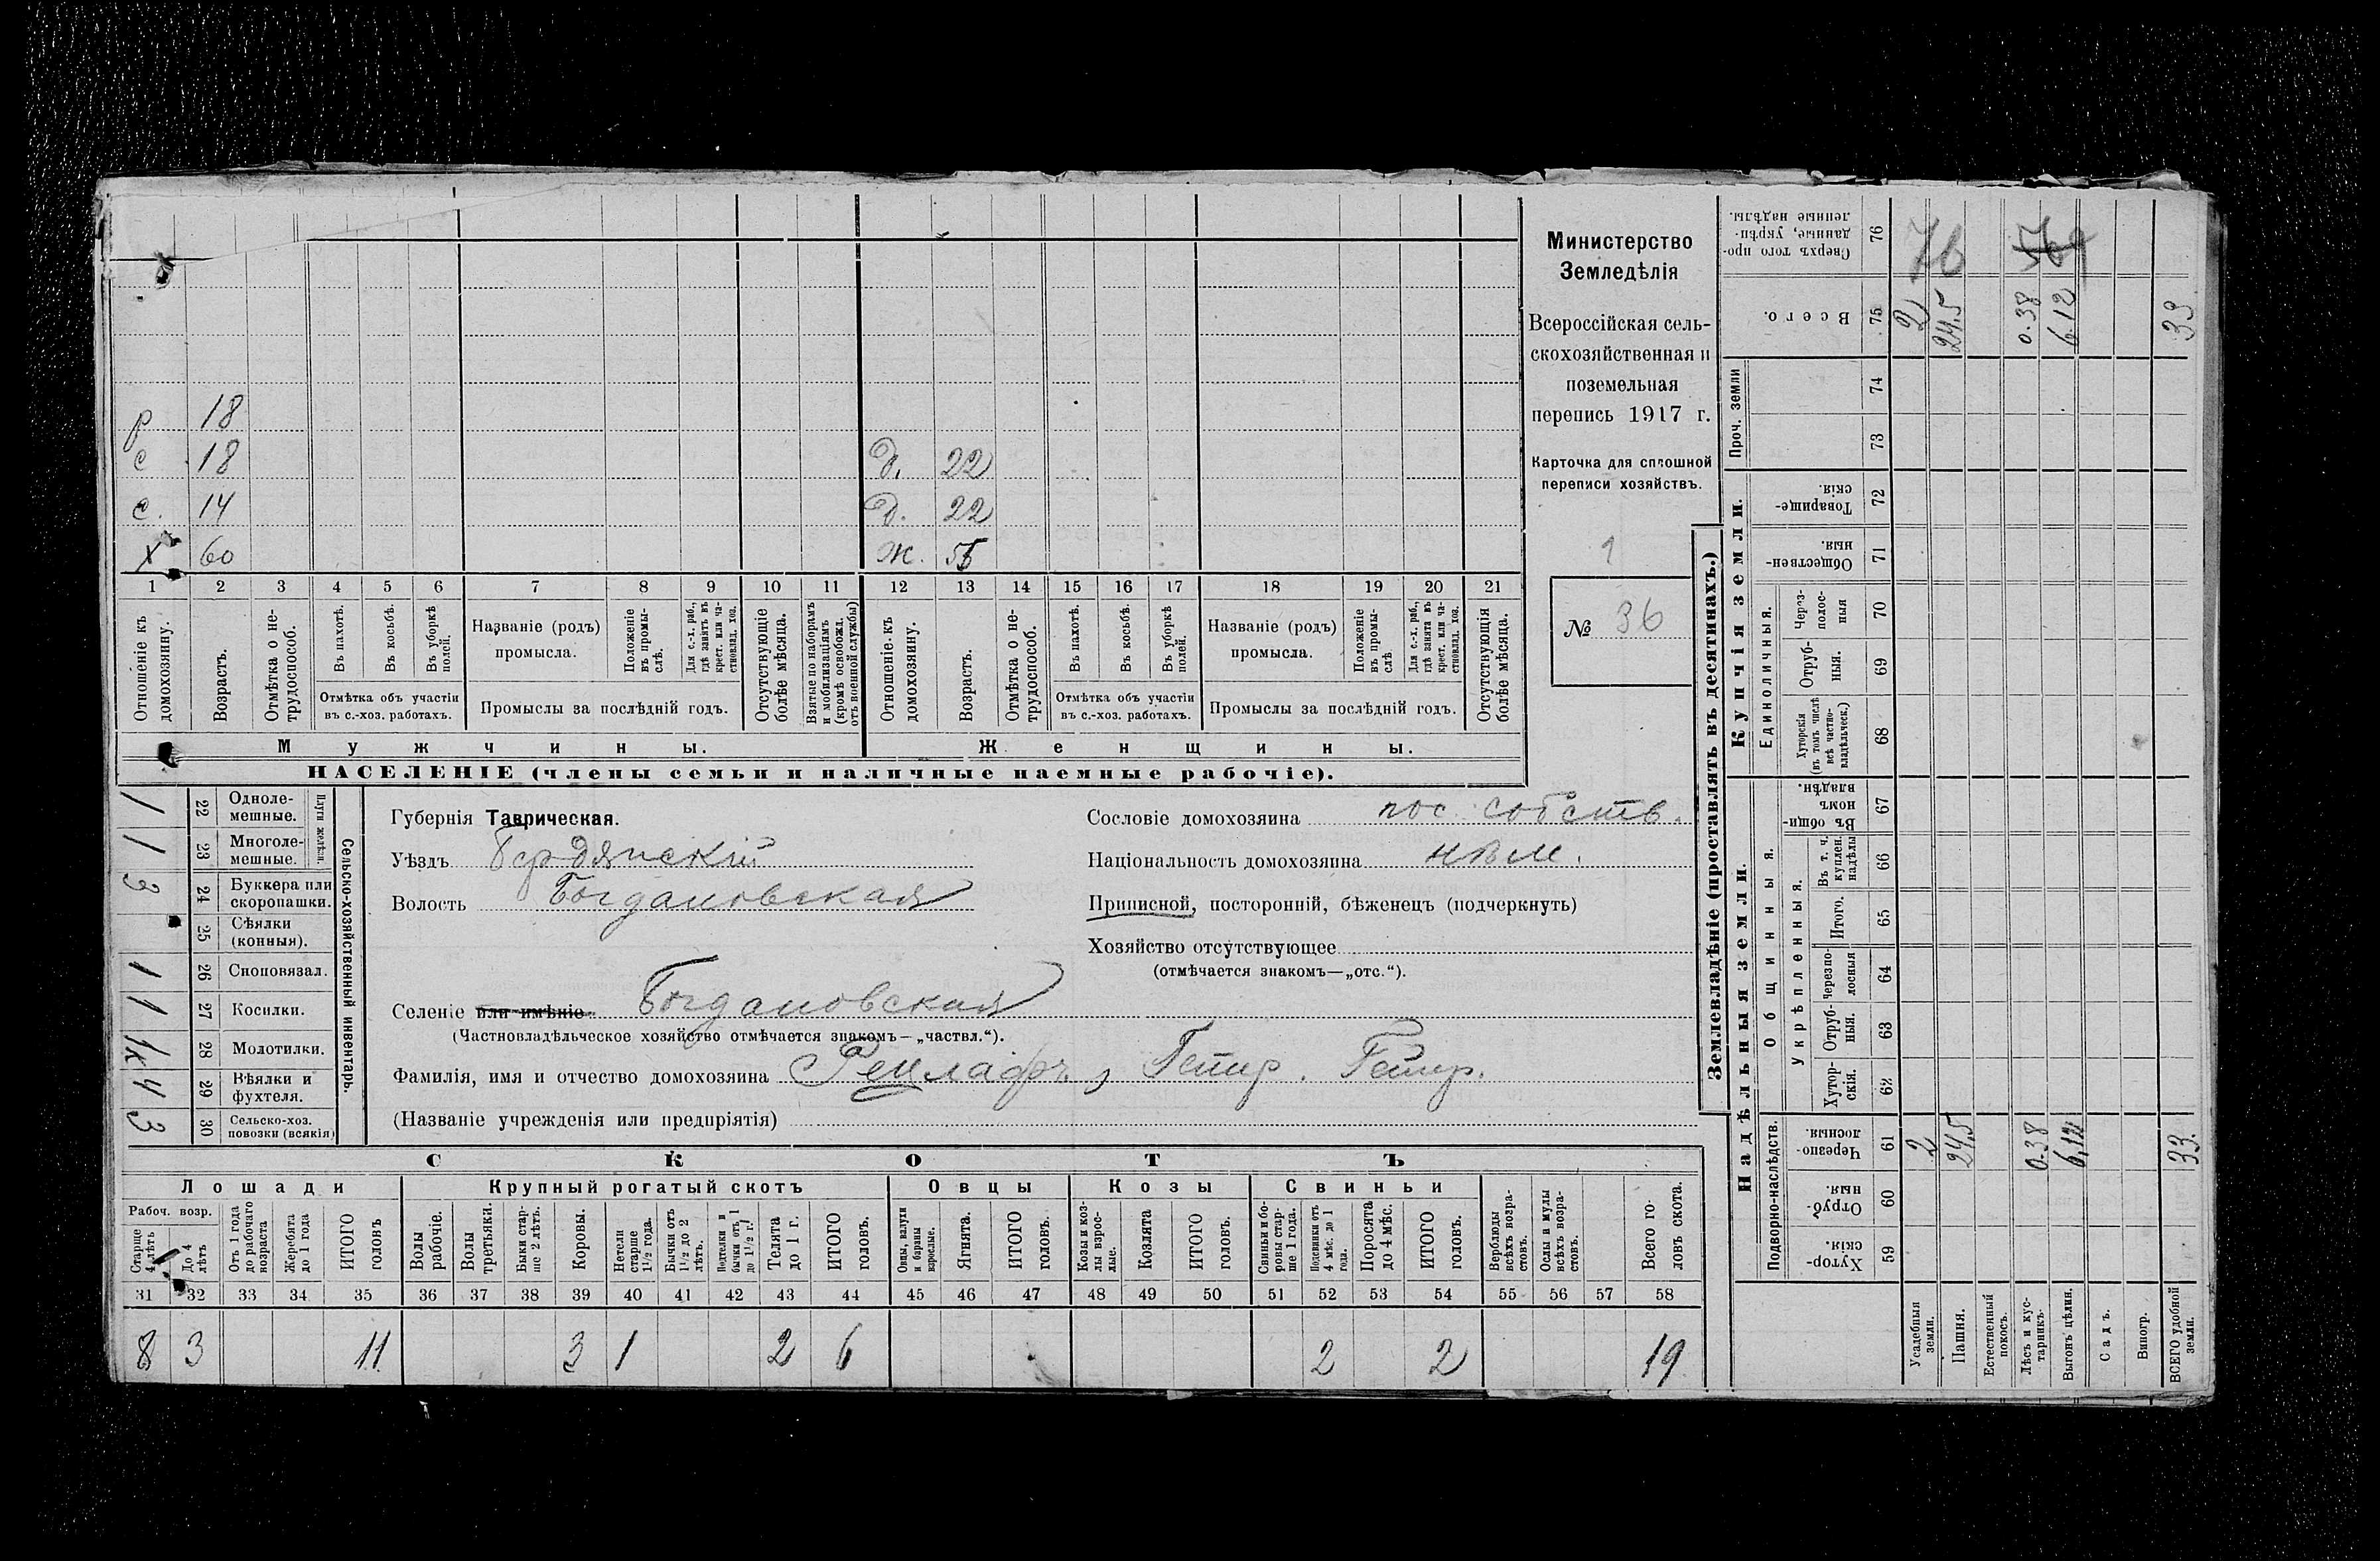 р 18
с 18 Д. 22
с. 14 Д. 22
х 60 Ж.
1 2 3 4 5 6 7 8 9 10 11 12 13 14 15 16 17 18 19 20 21
Отношеніе къ домохозяину.
Возрастъ.
Отмѣтка о не-трудоспособ.
Въ пахотѣ.
Въ косьбѣ.
Въ уборкѣ полей.
Отмѣтка объ участіи
въ с.-хоз. работахъ.
Названіе (родъ)
промысла.
Положеніе въ промы-слѣ.
Для с.-х. раб., гдѣ занятъ въ крест. или ча-стновлад. хоз.
Промыслы за послѣдній годъ.
Отсутствующіе болѣе мѣсяца.
Взятые по наборамъ и мобилизаціямъ (кромѣ освобожд. отъ военной службы)
Отношеніе къ домохозяину.
Возрастъ.
Отмѣтка о не-трудоспособ.
Въ пахотѣ.
Въ косьбѣ.
Въ уборкѣ полей.
Отмѣтка объ участіи
въ с.-хоз. работахъ.
Названіе (родъ)
промысла.
Положеніе въ промы-слѣ
Для с.-х. раб., гдѣ занята въ крест. или ча-стновлад. хоз.
Промыслы за послѣдній годъ.
Отсутствующія болѣе мѣсяца.
Мужчины. Женщины.
НАСЕЛЕНІЕ (члены семьи и наличные наемные рабочіе).
Министерство
Земледѣлія
Всероссійская сель-
скохозяйственная и
поземельная
перепись 1917 г.
Карточка для сплошной
переписи хозяйствъ.
№ 36
Сельско-хозяйственный инвентарь.
Плуги желѣзн.
1 22 Одноле-мешные.
1 23 Многоле-мешные.
3 24 Буккера или скоропашки.
25 Сѣялки (конныя).
1 26 Сноповязал.
1 27 Косилки.
1к 28 Молотилки.
4 29 Вѣялки и фухтеля.
3 30 Сельско-хоз. повозки (всякія)
Губернія Таврическая.
Уѣздъ Бердянскій
Волость Богдановская
Селеніе или имѣніе Богдановская
(Частновладѣльческое хозяйство отмѣчается знакомъ—„частвл.“).
Фамилія, имя и отчество домохозяина Ренлафъ, Петир. Петир.
(Названіе учрежденія или предпріятія)
Сословіе домохозяина пос. собств.
Національность домохозяина нѣм.
Приписной, посторонній, бѣженецъ (подчеркнуть)
Хозяйство отсутствующее
(отмѣчается знакомъ—„отс.“).
СКОТЪ
Лошади Крупный рогатый скотъ Овцы Козы Свиньи
Рабоч. возр.
Старше 4 лѣтъ
До 4 лѣтъ
Отъ 1 года до рабочаго возраста
Жеребята до 1 года
ИТОГО головъ
Волы рабочіе.
Волы третьяки.
Быки стар-ше 2 лѣтъ.
Коровы.
Нетели старше 1½ года.
Бычки отъ 1½ до 2 лѣтъ.
Подтелки и бычки отъ 1 до 1½ г.
Телята до 1 г.
ИТОГО головъ.
Овцы, валухи и бараны взрослые.
Ягнята.
ИТОГО головъ.
Козы и коз-лы взрос-лые.
Козлята
ИТОГО головъ.
Свиньи и бо-ровы стар-ше 1 года.
Подсвинки отъ 4 мѣс. до 1 года.
Поросята до 4 мѣс.
ИТОГО головъ.
Верблюды всѣхъ возра-стовъ.
Ослы и мулы всѣхъ возра-стовъ.
Всего го-ловъ скота.
31 32 33 34 35 36 37 38 39 40 41 42 43 44 45 46 47 48 49 50 51 52 53 54 55 56 57 58
8 3 11 3 1 2 6 2 2 19
Землевладѣніе (проставлять въ десятинахъ.)
Надѣльныя земли.
Купчія земли.
Проч. земли
Подворно-наслѣдств.
Общинныя.
Укрѣпленныя.
Единоличныя.
Сверхъ того про-данные, укрѣп-ленные надѣлы. 76
Всего. 75 2 24,5 0.38 6.12 33
74
73
Товарище-скія. 72
Обществен-ныя. 71
Через-полос-ныя 70
Отруб-ныя. 69
Хуторскія (въ томъ числѣ всѣ частно-владѣльческ.) 68
Въ общин-номъ владѣн. 67
Въ т. ч. куплен. надѣлы 66
Итого. 65
Черезпо-лосныя 64
Отруб-ныя. 63
Хутор-скія. 62
Черезпо-лосныя. 61 2 24,5 0.38 6,12 33.
Отруб-ныя. 60
Хутор-скія. 59
Усадебныя земли.
Пашня.
Естественный покосъ.
Лѣсъ и кус-тарникъ.
Выгонъ цѣлин.
Садъ.
Виногр.
ВСЕГО удобной земли.
76